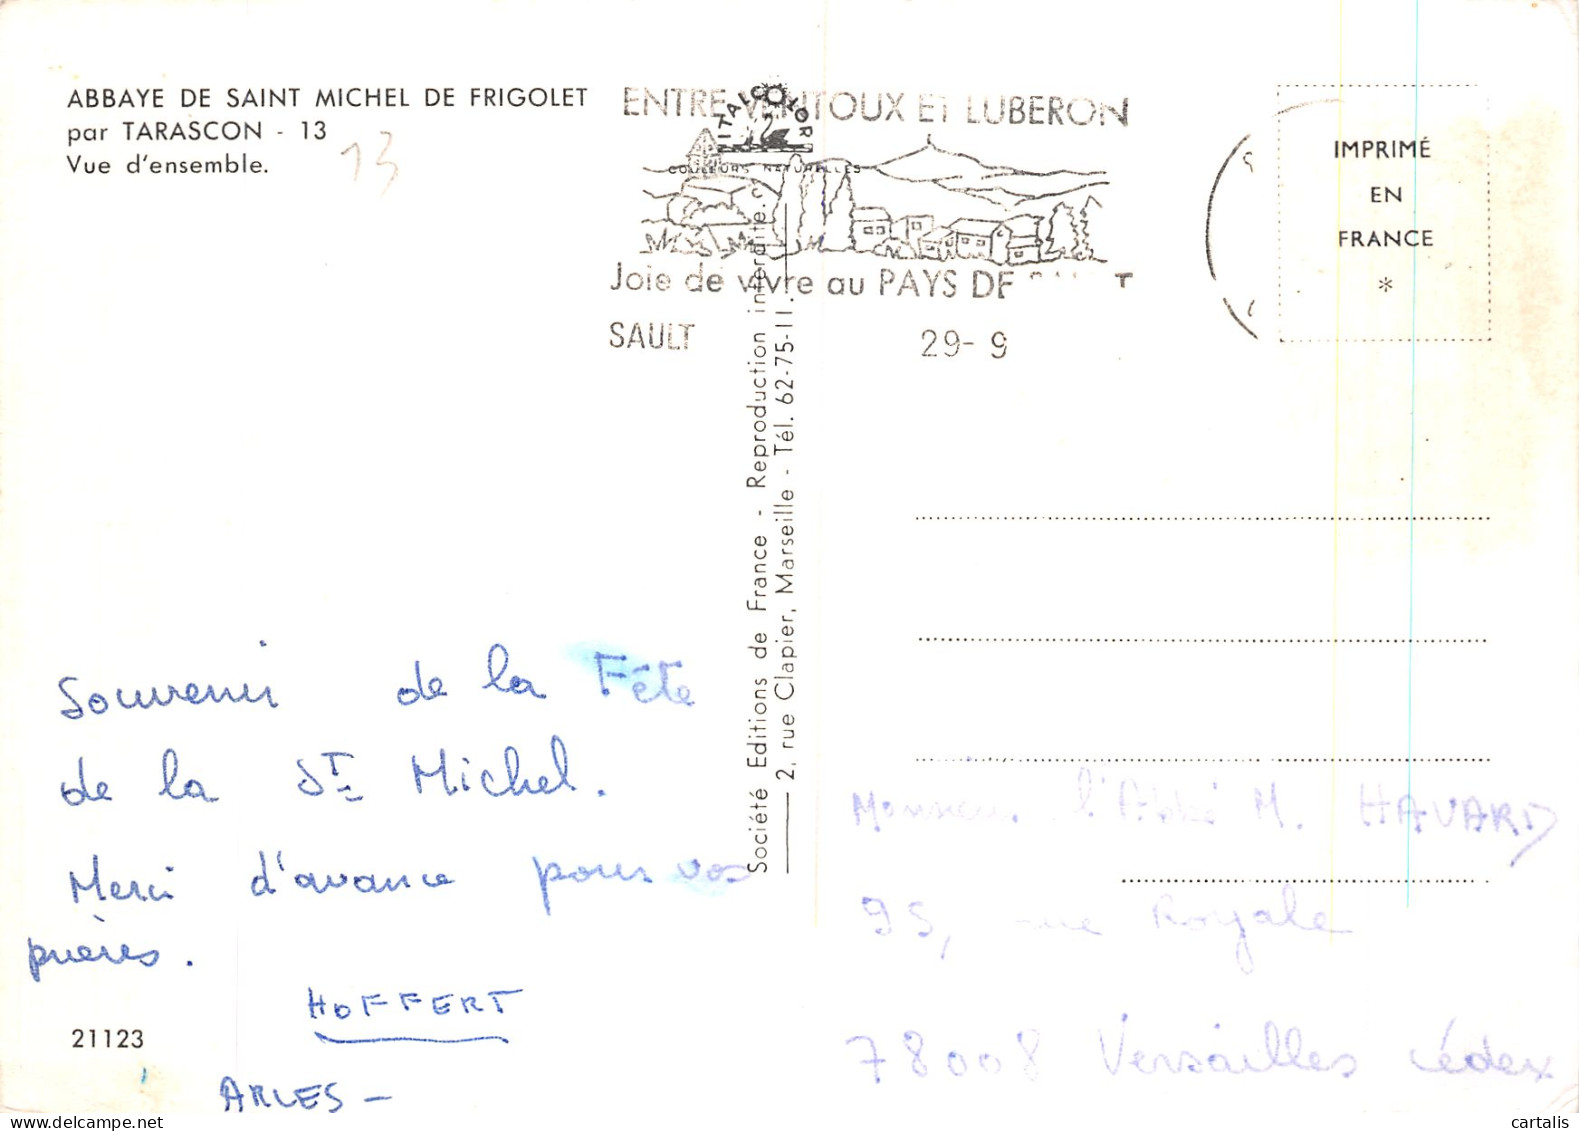 ABBAYE DE SAINT MICHEL DE FRIGOLET
par TARASCON - 13
Vue d'ensemble.
13
ENTRE VENTOUX ET LUBERON
ITALCOLOR
COULEURS NATURELLES
Joie de vivre au PAYS DE SAULT
SAULT 29-9
IMPRIMÉ
EN
FRANCE
*
Société Editions de France - Reproduction interdite.
2, rue Clapier, Marseille - Tél. 62-75-11.
Souvenir de la Fête
de la St Michel.
Merci d'avance pour vos
prières.
HOFFERT
ARLES -
21123
Monsieur l'Abbé M. HAVARD
95, rue Royale
78008 Versailles Cédex
cartalis